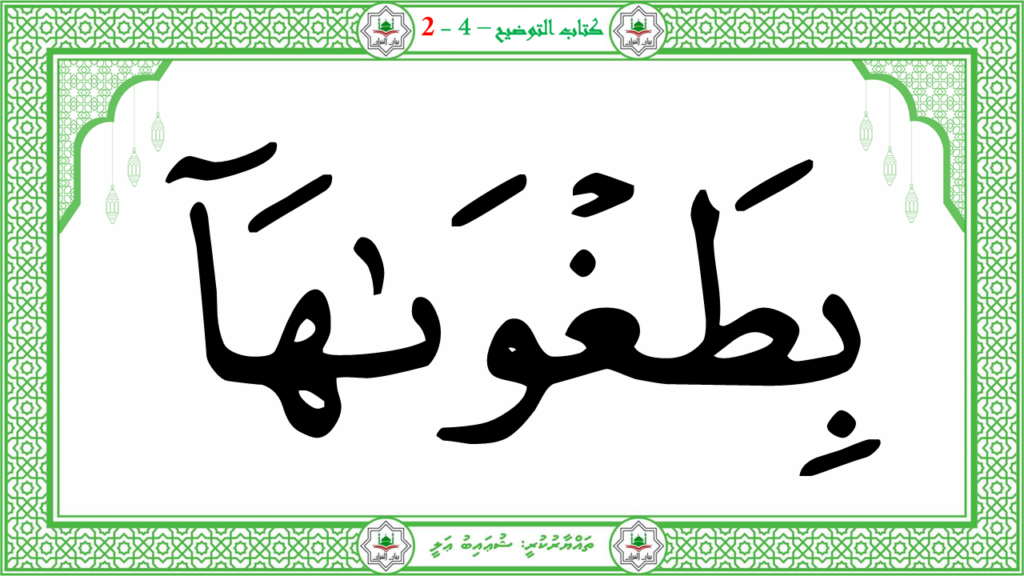 كتاب التوضيح – 4 - 2
بِطَغۡوَىٰهَآ
ތައްޔާރުކުރީ: ޝުޢައިބު ޢަލީ